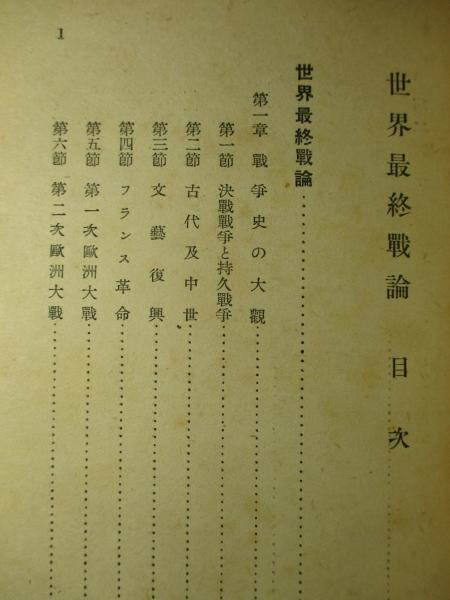 世界最終戰論 目次
世界最終戰論
第一章 戰爭史の大觀
第一節 決戰戰爭と持久戰爭
第二節 古代及中世
第三節 文藝復興
第四節 フランス革命
第五節 第一次歐洲大戰
第六節 第二次歐洲大戰
1